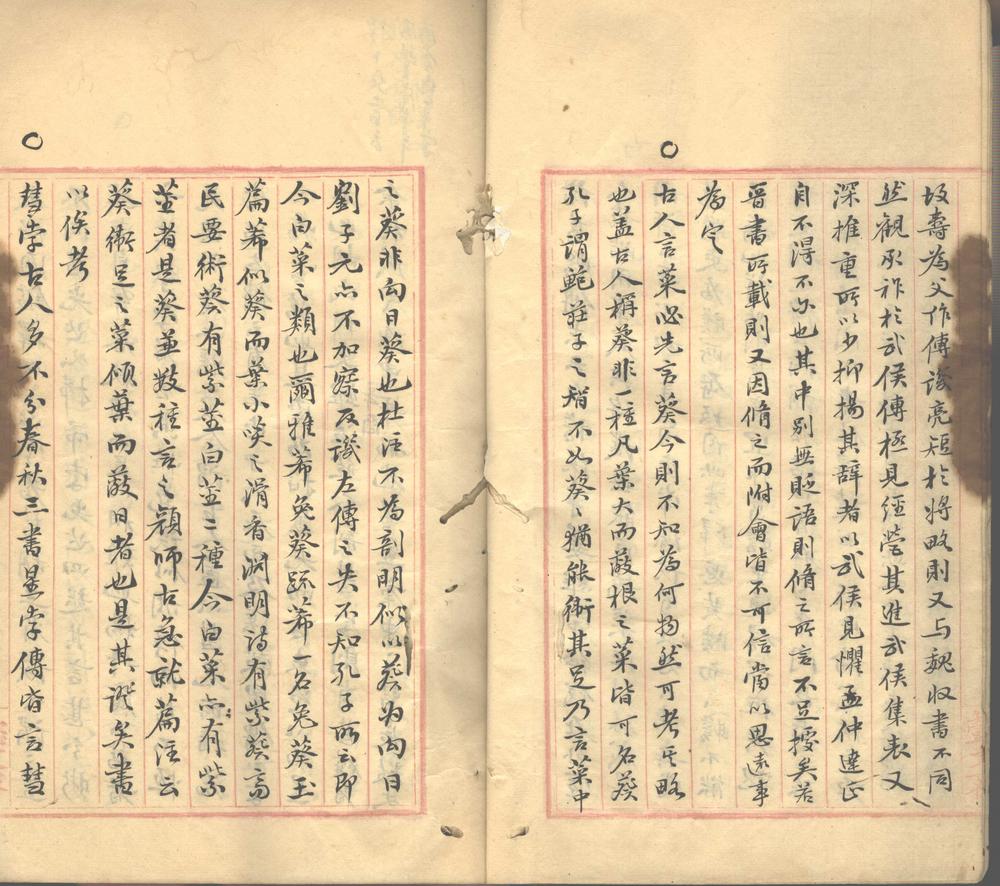 故壽為父作傳譏亮短於將略則又与魏收書不同
然觀承祚於武侯傳極見經營其進武侯集表又
深推重所以少抑揚其辭者以武侯見懼孟仲達正
自不得不尔也其中别無貶語則脩之所言不足據矣若
晉書所載則又因脩之而附會皆不可信當以思遠事
為定
古人言菜必先言葵今則不知為何物然可考其略
也盖古人稱葵非一種凡葉大而蔽根之菜皆可名葵
孔子謂鮑莊子之智不如葵、猶能衛其足乃言菜中
之葵非向日葵也杜注不為剖明似以葵为向日
劉子元亦不加察反譏左傳之失不知孔子所云即
今白菜之類也爾雅莃兔葵䟽莃一名兔葵玉
篇莃似葵而葉小啖之滑香渊明詩有紫葵齊
民要術葵有紫莖白莖二種今白菜亦有紫
莖者是葵並數種言之顔師古急就篇注云
葵衛足之菜傾葉而蔽日者也是其證矣書
以俟考
彗孛古人多不分春秋三書星孛傳皆言彗